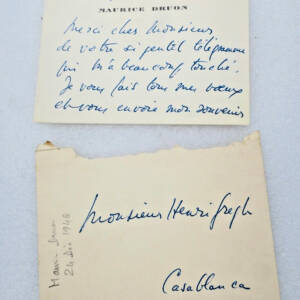 MAURICE DRUON
Merci cher Monsieur
de votre si gentil télégramme
qui m'a beaucoup touché.
Je vous fais tous mes vœux
et vous envoie mon souvenir
Monsieur Henri Gregh
Casablanca
Maurice Druon
24 Déc 1948